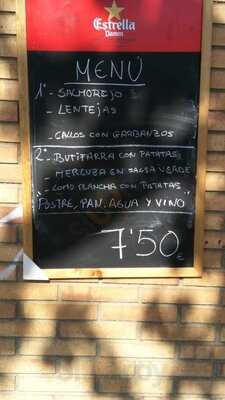 Estrella
Damm
MENÚ
1º - SALMOREJO
- LENTEJAS
- CALLOS CON GARBANZOS
2º - BUTIFARRA CON PATATAS
- MERLUZA EN SALSA VERDE
- LOMO PLANCHA CON PATATAS
POSTRE, PAN, AGUA Y VINO
7'50€